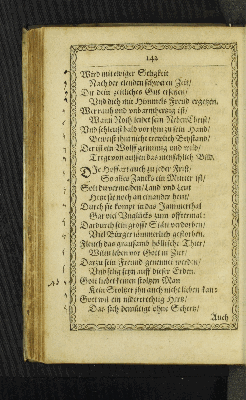 142
Wird mit ewiger Seligkeit
Nach der elenden schweren Zeit/
Dir dein zeitliches Gut ersetzen/
Und dich mit Himmels Freud ergetzen.
Wer rauh und unbarmhertzig ist/
Wann Noth leidet sein NebenChrist/
Und schleust bald vor ihm zu sein Hand/
Beweist ihm nicht trewlich Beystand/
Der ist ein Wolff grimmig und wild/
Tregt von aussen das menschlich Bild.
Die Hoffart auch zu jeder Frist/
So alles Zancks ein Meister ist/
Solt du vermeiden/Land und Leut
Hetzt sie noch an einander heut/
Durch sie kompt in das Jammerthal
Gar viel Unglücks zum offtermal:
Dardurch sein grosse Stätt verdorben/
Viel Bürger jämmerlich gestorben.
Fleuch das grausame höllische Thier/
Wann leben vor Gott in Zier/
Darzu sein Freund genennet werden/
Und selig seyn auff dieser Erden.
Gott liebet keinen stolzen Man
Kein Stoltzer ihn auch nicht lieben kan:
Gott wil ein nidertrechtig Hertz/
Das sich demütige ohne Schertz/
Auch